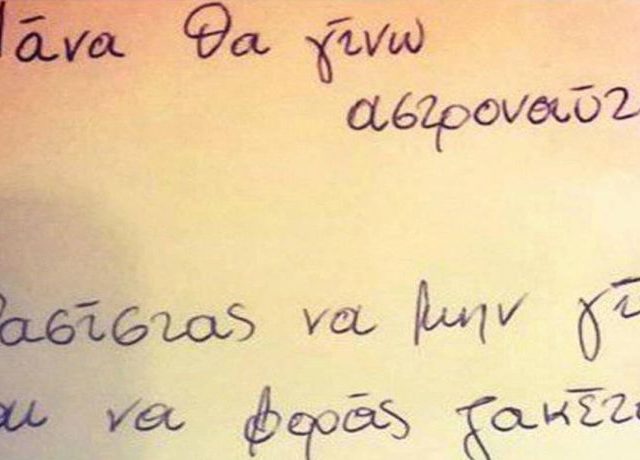 Μάνα θα γίνω
αστροναύτ
φασίστας να μην γί
αι να φοράς ζακέτ